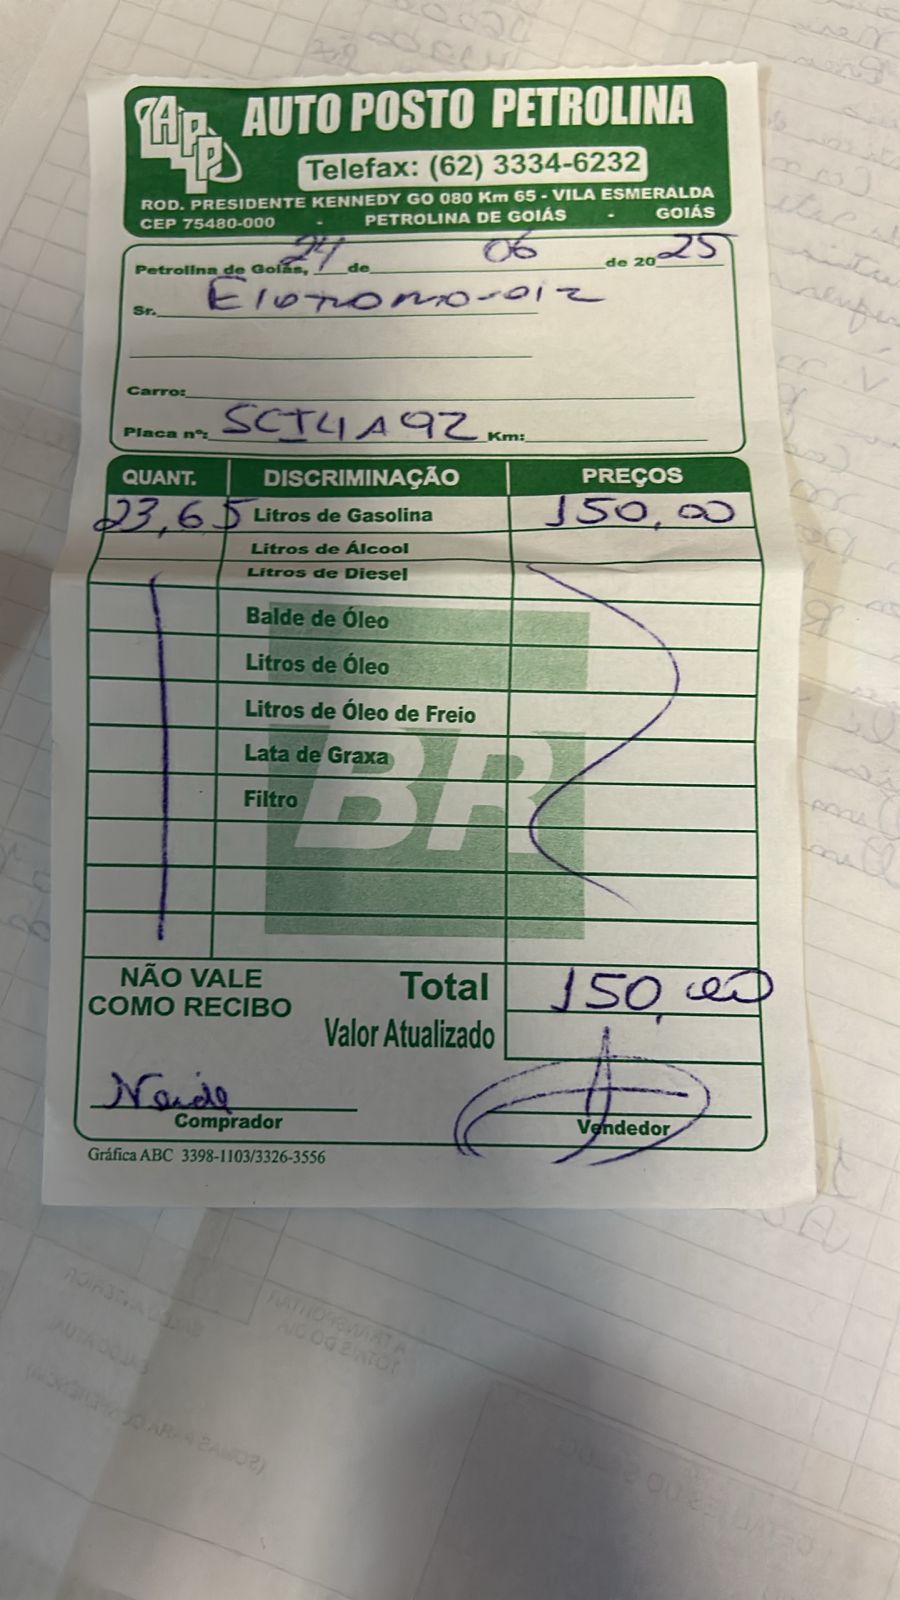 APP AUTO POSTO PETROLINA
Telefax: (62) 3334-6232
ROD. PRESIDENTE KENNEDY GO 080 Km 65 - VILA ESMERALDA
CEP 75480-000 - PETROLINA DE GOIÁS - GOIÁS
Petrolina de Goiás, 24 de 06 de 2025
Sr.
Carro:
Placa nº: SCI4A92 Km:
QUANT. DISCRIMINAÇÃO PREÇOS
23,65 Litros de Gasolina 150,00
Litros de Álcool
Litros de Diesel
Balde de Óleo
Litros de Óleo
Litros de Óleo de Freio
Lata de Graxa
Filtro
BR
NÃO VALE COMO RECIBO
Total 150,00
Valor Atualizado
Neide
Comprador Vendedor
Gráfica ABC 3398-1103/3326-3556